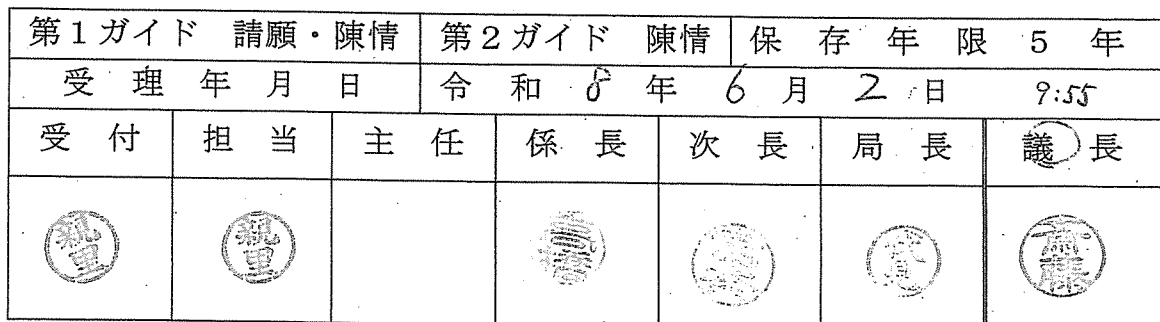 第1ガイド 請願・陳情 第2ガイド 陳情 保存年限 5年
受理年月日 令和8年6月2日 9:55
受付 担当 主任 係長 次長 局長 議長
親里 親里 斎藤